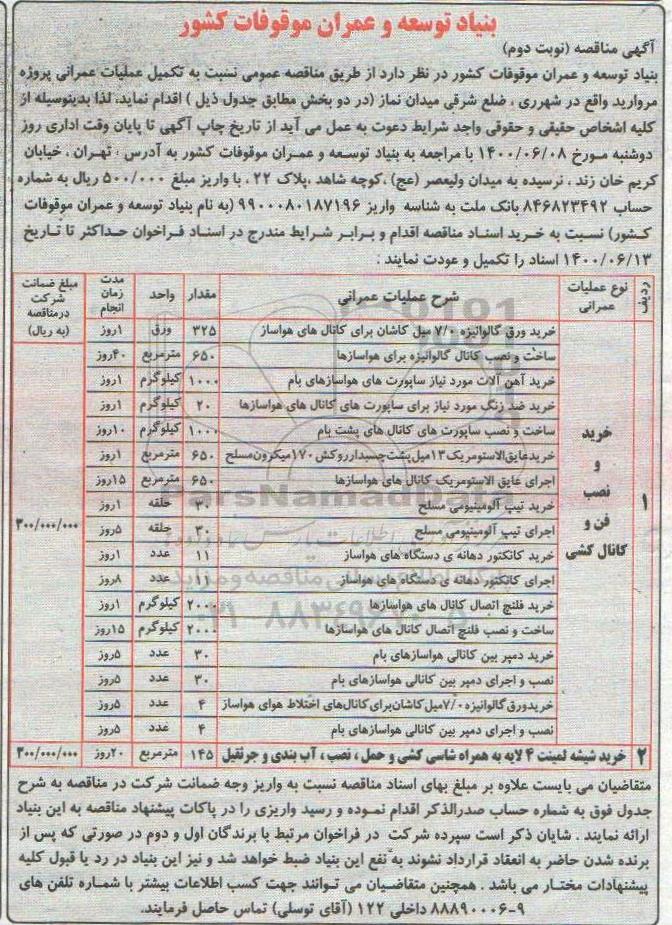 بنیاد توسعه و عمران موقوفات کشور
آگهی مناقصه (نوبت دوم)
بنیاد توسعه و عمران موقوفات کشور در نظر دارد از طریق مناقصه عمومی نسبت به تکمیل عملیات عمرانی پروژه
مروارید واقع در شهرری ، ضلع شرقی میدان نماز (در دو بخش مطابق جدول ذیل ) اقدام نماید، لذا بدینوسیله از
کلیه اشخاص حقیقی و حقوقی واجد شرایط دعوت به عمل می آید از تاریخ چاپ آگهی تا پایان وقت اداری روز
دوشنبه مورخ ۱۴۰۰/۰۶/۰۸ با مراجعه به بنیاد توسعه و عمران موقوفات کشور به آدرس ، تهران ، خیابان
کریم خان زند ، نرسیده به میدان ولیعصر (عج) ،کوچه شاهد ،پلاک ۲۲ ، با واریز مبلغ ۵۰۰/۰۰۰ ریال به شماره
حساب ۸۴۶۸۲۳۴۹۲ بانک ملت به شناسه واریز ۹۹۰۰۰۸۰۱۸۷۱۹۶ (به نام بنیاد توسعه و عمران موقوفات
کشور) نسبت به خرید اسناد مناقصه اقدام و برابر شرایط مندرج در اسناد فراخوان حداکثر تا تاریخ
۱۴۰۰/۰۶/۱۳ اسناد را تکمیل و عودت نمایند :
ردیف نوع عملیات عمرانی شرح عملیات عمرانی مقدار واحد مدت زمان انجام مبلغ ضمانت شرکت درمناقصه (به ریال)
۱ خرید و نصب فن و کانال کشی ۳۰۰/۰۰۰/۰۰۰
خرید ورق گالوانیزه ۷/۰ میل کاشان برای کانال های هواساز ۳۲۵ ورق ۱روز
ساخت و نصب کانال گالوانیزه برای هواسازها ۶۵۰ مترمربع ۴۰روز
خرید آهن آلات مورد نیاز ساپورت های هواسازهای بام ۱۰۰۰ کیلوگرم ۱روز
خرید ضد زنگ مورد نیاز برای ساپورت های کانال های هواسازها ۲۰ کیلوگرم ۱روز
ساخت و نصب ساپورت های کانال های پشت بام ۱۰۰۰ کیلوگرم ۱۰روز
خریدعایق‌الاستومریک ۱۳میل‌پشت‌چسبدارروکش ۱۷۰میکرون‌مسلح ۶۵۰ مترمربع ۱روز
اجرای عایق الاستومریک کانال های هواسازها ۶۵۰ مترمربع ۱۵روز
خرید تیپ آلومینیومی مسلح ۳۰ حلقه ۱روز
اجرای تیپ آلومینیومی مسلح ۳۰ حلقه ۵روز
خرید کانکتور دهانه ی دستگاه های هواساز ۱۱ عدد ۱روز
اجرای کانکتور دهانه ی دستگاه های هواساز ۱۱ عدد ۸روز
خرید فلنچ اتصال کانال های هواسازها ۲۰۰۰ کیلوگرم ۱روز
ساخت و نصب فلنچ اتصال کانال های هواسازها ۲۰۰۰ کیلوگرم ۱۵روز
خرید دمپر بین کانالی هواسازهای بام ۳۰ عدد ۵روز
نصب و اجرای دمپر بین کانالی هواسازهای بام ۳۰ عدد ۵روز
خریدورق‌گالوانیزه ۷/۰میل‌کاشان‌برای‌کانال‌های اختلاط هوای هواساز ۴ عدد ۵روز
نصب و اجرای دمپر بین کانالی هواسازهای بام ۴ عدد ۵روز
۲ خرید شیشه لمینت ۴ لایه به همراه شاسی کشی و حمل ، نصب ، آب بندی و جرثقیل ۱۴۵ مترمربع ۲۰روز ۳۰۰/۰۰۰/۰۰۰
متقاضیان می بایست علاوه بر مبلغ بهای اسناد مناقصه نسبت به واریز وجه ضمانت شرکت در مناقصه به شرح
جدول فوق به شماره حساب صدرالذکر اقدام نموده و رسید واریزی را در پاکات پیشنهاد مناقصه به این بنیاد
ارائه نمایند . شایان ذکر است سپرده شرکت در فراخوان مرتبط با برندگان اول و دوم در صورتی که پس از
برنده شدن حاضر به انعقاد قرارداد نشوند به نفع این بنیاد ضبط خواهد شد و نیز این بنیاد در رد یا قبول کلیه
پیشنهادات مختار می باشد . همچنین متقاضیان می توانند جهت کسب اطلاعات بیشتر با شماره تلفن های
۹-۸۸۸۹۰۰۰۶ داخلی ۱۲۲ (آقای توسلی) تماس حاصل فرمایند.
ParsNamadData